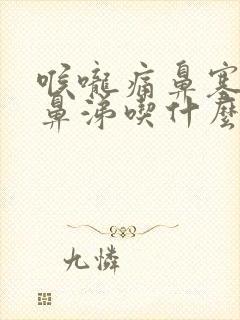 喉嚨痛鼻塞
鼻涕喫什麼
九憐